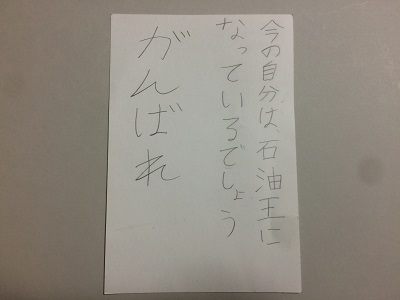 今の自分は、石油王に
なっているでしょう
がんばれ